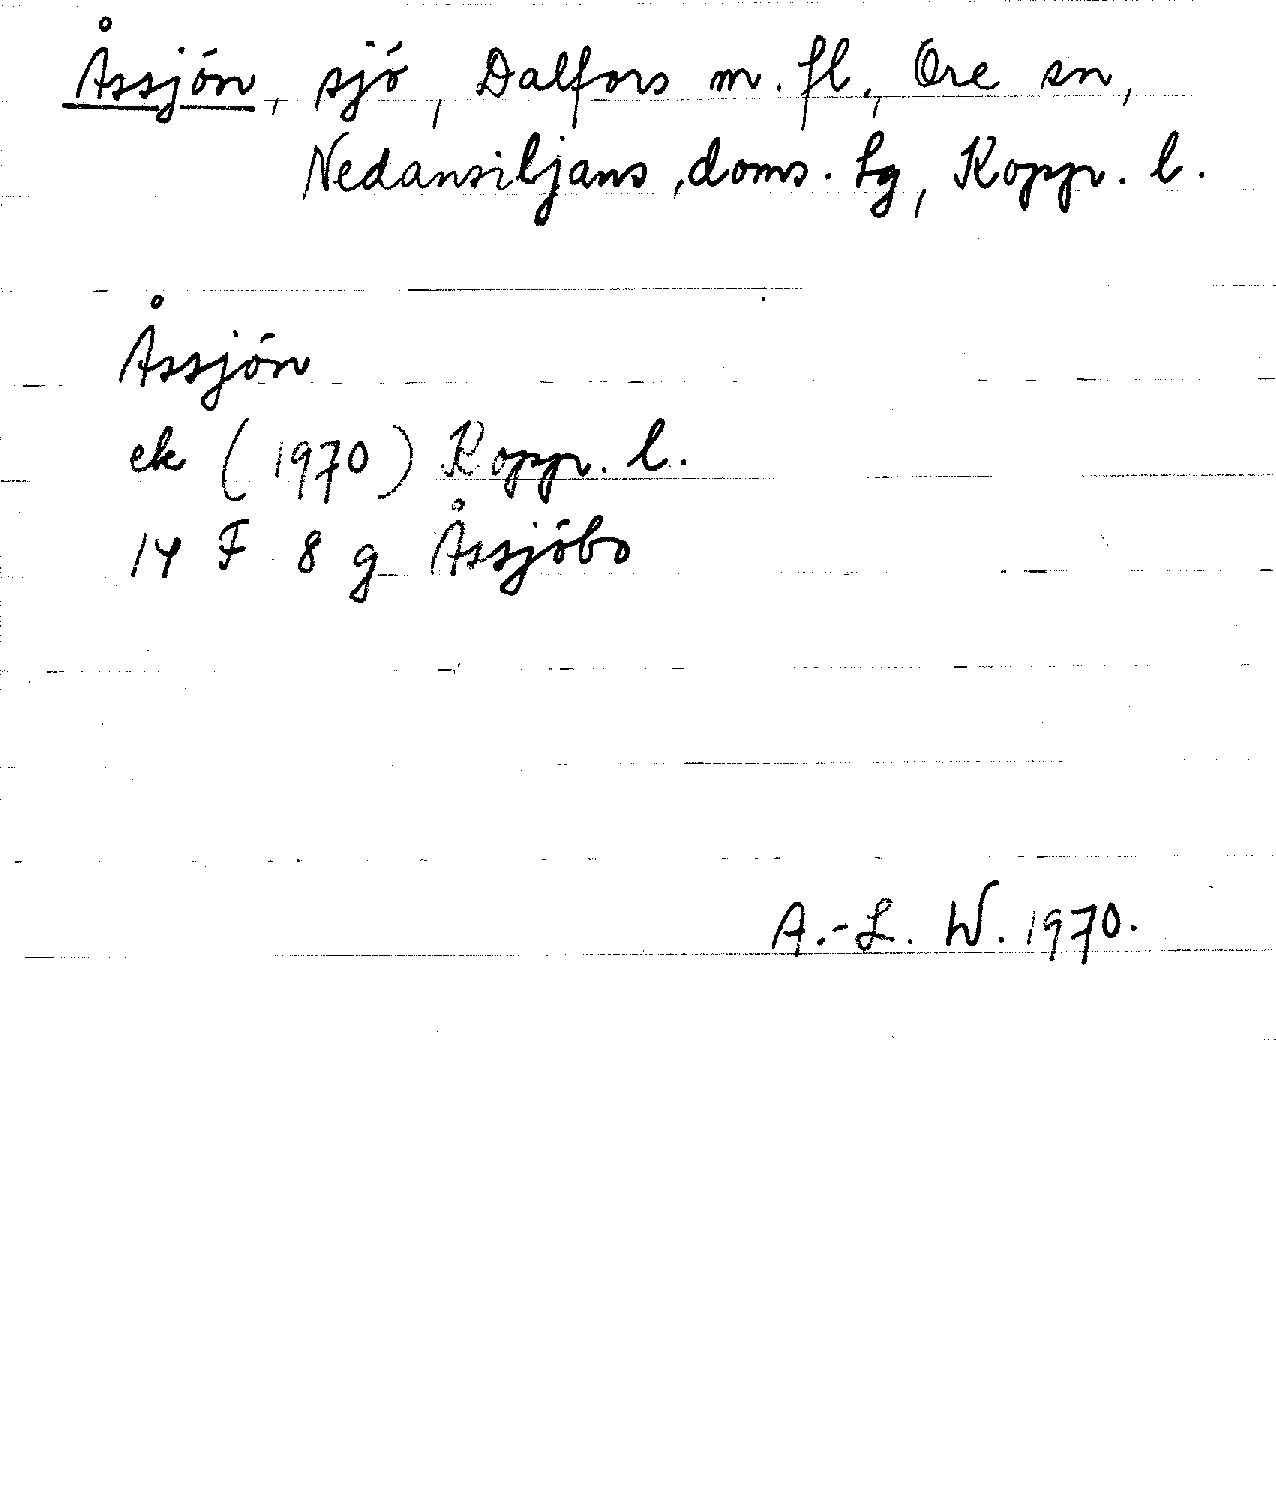 Åssjön, sjö, Dalfors m. fl., Ore sn,
Nedansiljans doms. tg, Kopp. l.
Åssjön
ek (1970) Kopp. l.
14 F 8 g Åssjöbo
A.-L. W. 1970.